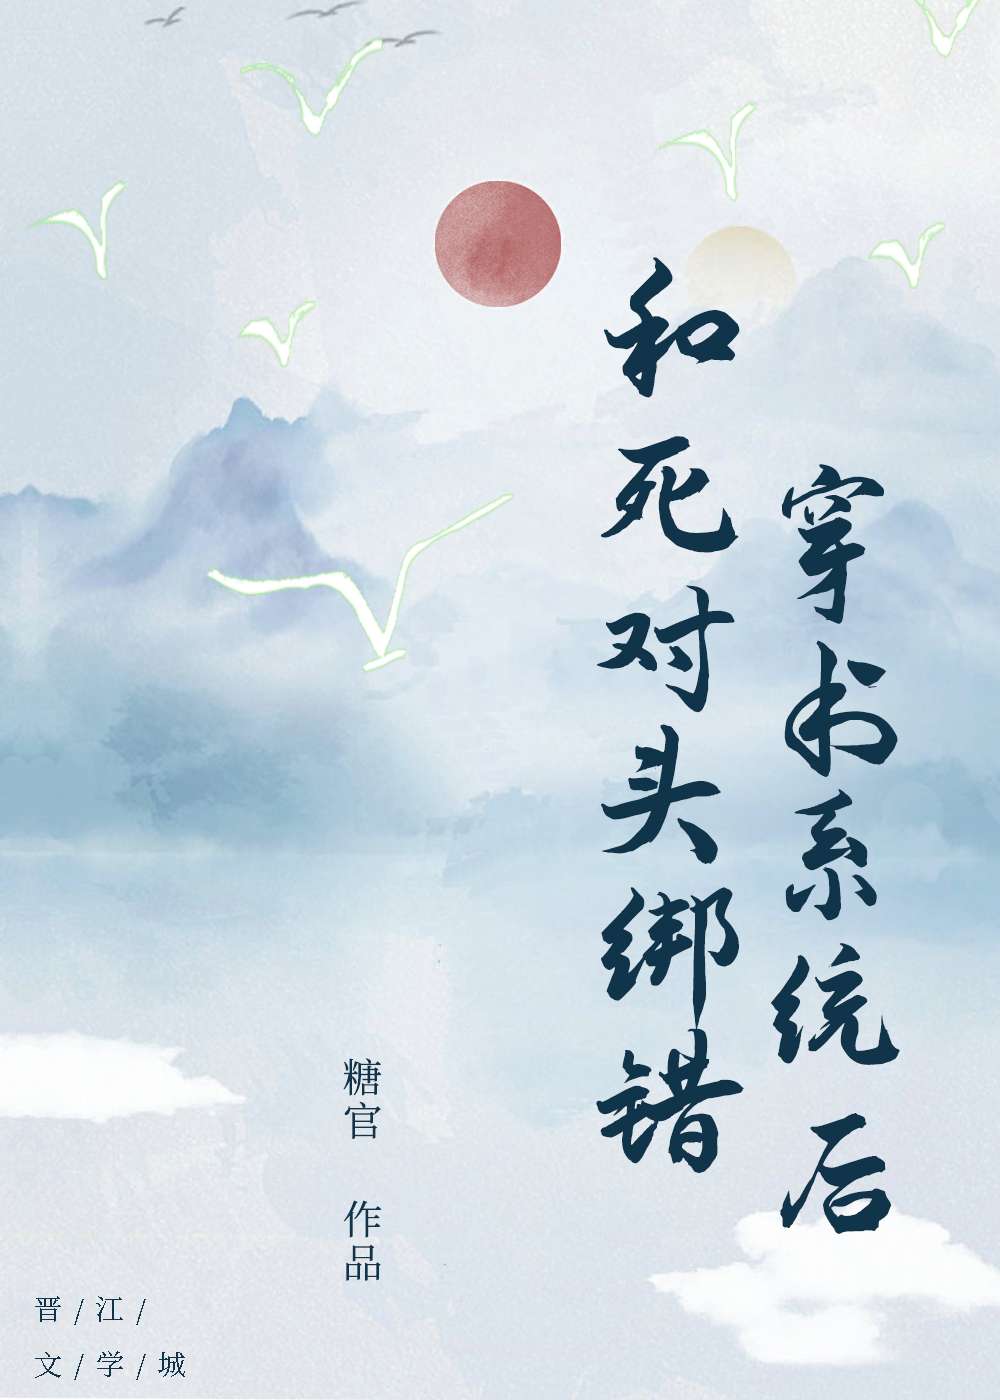 和死对头绑错
穿书系统后
糖官 作品
晋/江/
文/学/城